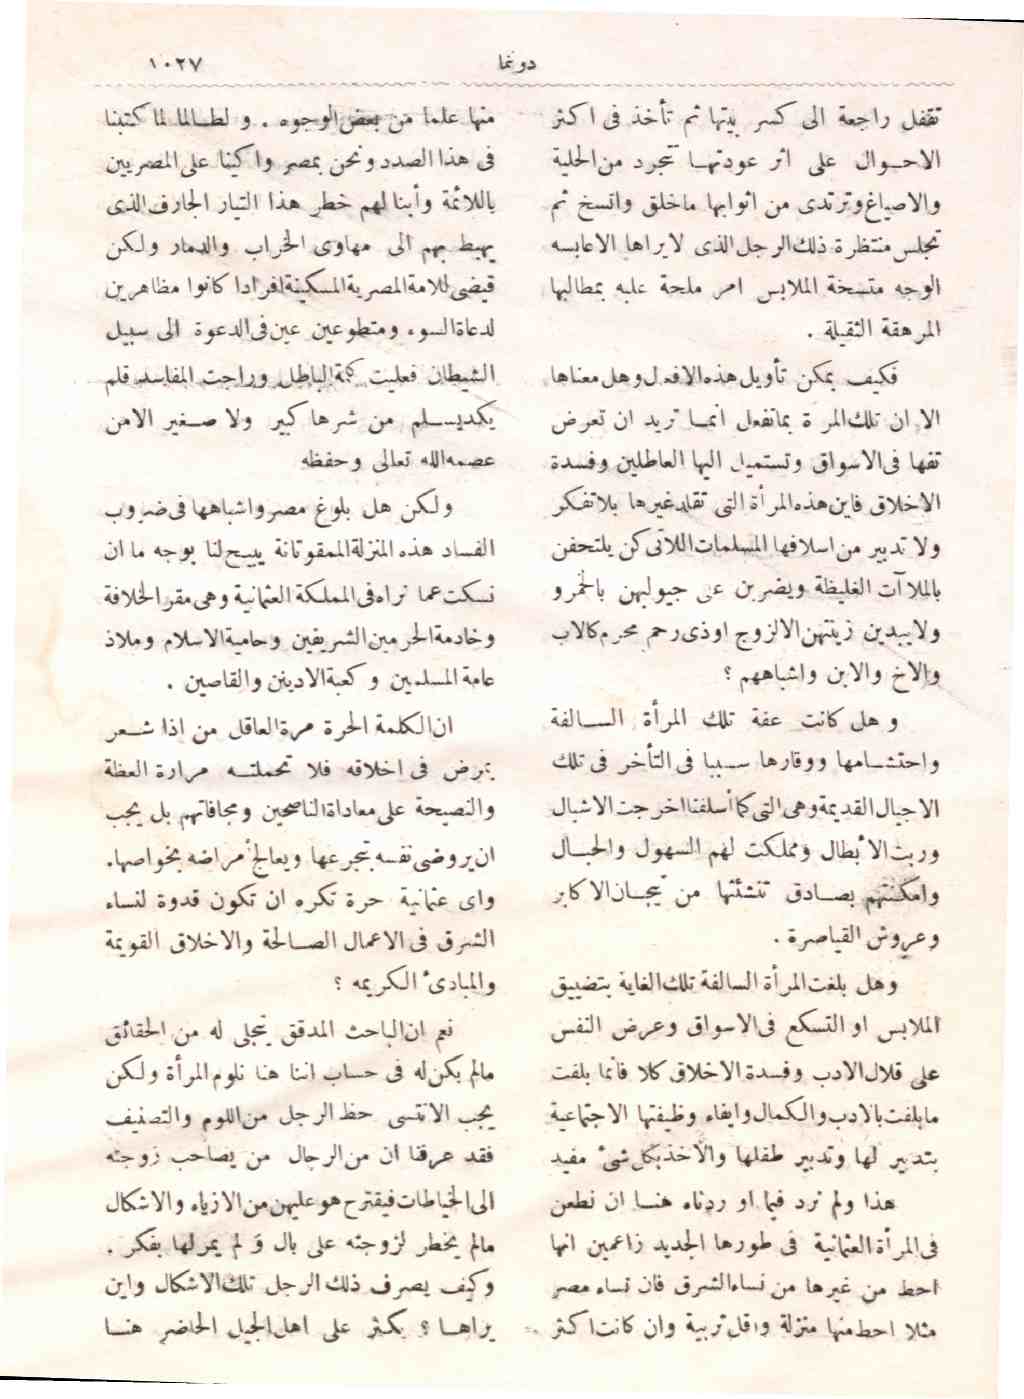 دوغما
١٠٢٧
تقفل راجعة الى كسر بيتها ثم تأخذ فى اكثر
الاحوال على اثر عودتها تتجرد من الحلية
والاصياغ وترتدى من اثوابها ماخلق واتسخ ثم
تجلس منتظرة ذلك الرجل الذى لايراها الاعابسه
الوجه متسخة الملابس امر ملحة عليه بمطالبها
المرهقة الثقيلة .
فكيف يمكن تأويل هذه الافعال وهل معناها
الا ان تلك المرأة بماتفعل انما تريد ان تعرض
نفها فى الاسواق وتستميل اليها العاطلين وفسدة
الاخلاق فاين هذه المرأة التى تقلد غيرها بلاتفكر
ولا تدبير من اسلافها المسلمات اللاتى كن يلتحفن
بالملاآت الغليظة ويضربن على جيوبهن بالخمر و
ولايبدين زينتهن الالزوج اوذى رحم محرم كالاب
والاخ والابن واشباههم ؟
وهل كانت عفة تلك المرأة السالفة
واحتشامها ووقارها سببا فى التأخر فى تلك
الاجيال القديمة وهى التى كما أسلفنا اخرجت الاشبال
وربت الأبطال ومملكت لهم السهول والجبال
وامكنتهم بصادق تنشئتها من تيجان الاكابر
وعروش القياصرة .
وهل بلغت المرأة السالفة تلك الغاية بتضييق
الملابس او التسكع فى الاسواق وعرض النفس
على قلال الادب وفسدة الاخلاق كلا فانما بلغت
مابلغت بالادب والكمال وايفاء وظيفتها الاجتماعية
بتدبير لها وتدبير طفلها والاخذ بكل شئ مفيد
هذا ولم نرد فيما اوردناه هنا ان نطعن
فى المرأة العثمانية فى طورها الجديد زاعمين انها
احط من غيرها من نساء الشرق فان نساء مصر
مثلا احط منها منزلة واقل تربية وان كانت اكثر
منها علما من بعض الوجوه . و لطالما لما كتبنا
فى هذا الصدد ونحن بمصر واكينا على المصريين
باللائمة وأبنا لهم خطر هذا التيار الجارف الذى
يهبط بهم الى مهاوى الخراب والدمار ولكن
قيضى للامة المصرية المسكينة افرادا كانوا مظاهرين
لدعاة السوء ومتطوعين عين فى الدعوة الى سبيل
الشيطان فعليت كلمة الباطل وراجت المفاسد فلم
يكد يسلم من شرها كبير ولا صغير الامن
عصمه الله تعالى وحفظه
ولكن هل بلوغ مصر واشباهها فى ضروب
الفساد هذه المنزلة الممقوتانة يبيح لنا بوجه ما ان
نسكت عما نراه فى المملكة العثمانية وهى مقر الخلافة
وخادمة الحرمين الشريفين وحامية الاسلام وملاذ
عامة المسلمين و كعبة الادنين والقاصين .
ان الكلمة الحرة مرة العاقل من اذا شعر
بمرض فى اخلاقه فلا تحملته مرارة العظة
والنصيحة على معاداة الناصحين ومجافاتهم بل يجب
ان يروضى نفسه بتجرعها ويعالج أمراضه بخواصها.
واى عثمانية حرة تكره ان تكون قدوة لنساء
الشرق فى الاعمال الصالحة والاخلاق القويمة
والمبادئ الكريمه ؟
نعم ان الباحث المدقق يتجلى له من الحقائق
مالم يكن له فى حساب اننا هنا نلوم المرأة ولكن
يجب الاننسى حظ الرجل من اللوم والتصنيف
فقد عرقنا ان من الرجال من يصاحب زوجته
الى الخياطات فيقترح هو عليهن من الازياء والاشكال
مالم يخطر لزوجته على بال و لم يمر لها بفكر .
وكيف يصرف ذلك الرجل تلك الاشكال واين
يراها ؟ يكثر على اهل الجيل الحاضر هنا